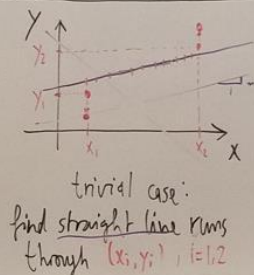 Y
y₂
y₁
x₁
x₂
X
trivial case:
find straight line runs
through (xᵢ,yᵢ), i=1,2